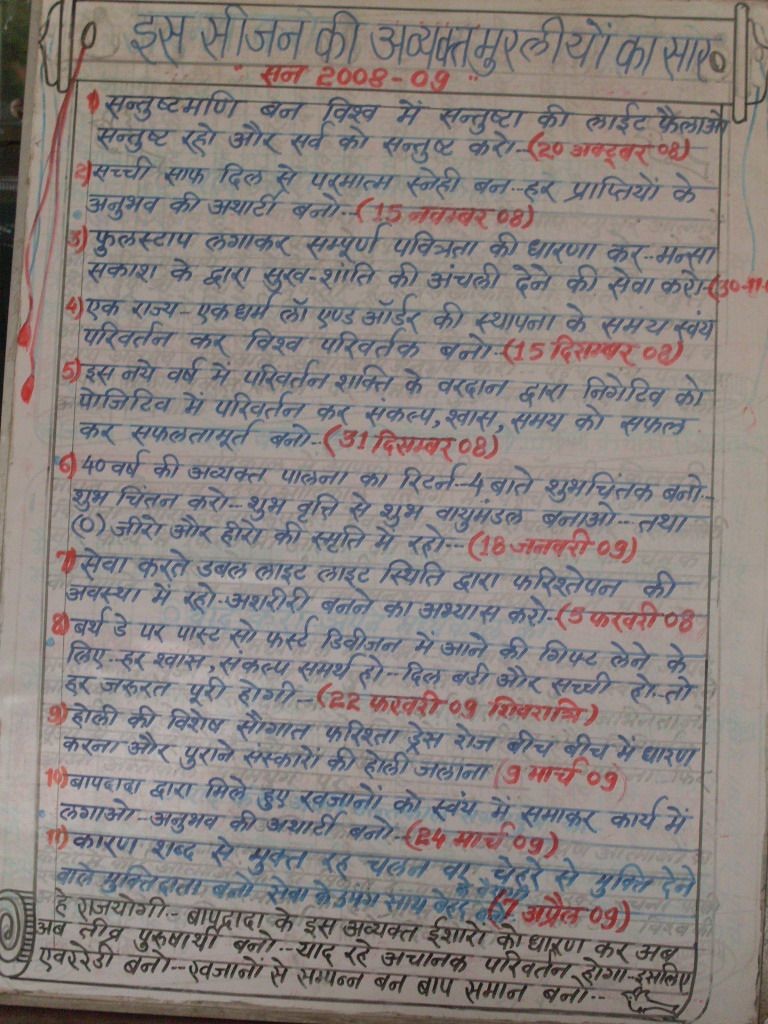 इस सीजन की अव्यक्त मुरलीयों का सार
" सन 2008-09 "
1) सन्तुष्टमणि बन विश्व में सन्तुष्टा की लाईट फैलाओ
सन्तुष्ट रहो और सर्व को सन्तुष्ट करो--(20 अक्टूबर 08)
2) सच्ची साफ दिल से परमात्म स्नेही बन--हर प्राप्तियों के
अनुभव की अथार्टी बनो--(15 नवम्बर 08)
3) फुलस्टाप लगाकर सम्पूर्ण पवित्रता की धारणा कर--मन्सा
सकाश के द्वारा सुख-शांति की अंचली देने की सेवा करो-(30-11-
4) एक राज्य-एक धर्म लॉ एण्ड ऑर्डर की स्थापना के समय स्वंय
परिवर्तन कर विश्व परिवर्तक बनो--(15 दिसम्बर 08)
5) इस नये वर्ष में परिवर्तन शक्ति के वरदान द्वारा निगेटिव को
पोजिटिव में परिवर्तन कर संकल्प, श्वास, समय को सफल
कर सफलतामूर्त बनो--(31 दिसम्बर 08)
6) 40 वर्ष की अव्यक्त पालना का रिटर्न--4 बाते शुभचिंतक बनो--
शुभ चिंतन करो--शुभ वृत्ति से शुभ वायुमंडल बनाओ--तथा
(0) जीरो और हीरो की स्मृति में रहो--(18 जनवरी 09)
7) सेवा करते डबल लाइट लाइट स्थिति द्वारा फरिश्तेपन की
अवस्था में रहो-अशरीरी बनने का अभ्यास करो-(5 फरवरी 08
8) बर्थ डे पर पास्ट सो फर्स्ट डिवीजन में आने की गिफ्ट लेने के
लिए--हर श्वास, संकल्प समर्थ हो--दिल बडी और सच्ची हो--तो
हर जरूरत पूरी होगी--(22 फरवरी 09 शिवरात्रि)
9) होली की विशेष सौगात फरिश्ता ड्रेस रोज बीच बीच में धारण
करना और पुराने संस्कारों की होली जलाना (9 मार्च 09)
10) बापदादा द्वारा मिले हुए खजानों को स्वंय में समाकर कार्य में
लगाओ-अनुभव की अथार्टी बनो--(24 मार्च 09)
11) कारण शब्द से मुक्त रह चलन वा चेहरे से मुक्ति देने
वाले मुक्तिदाता बनो सेवा के उमंग साथ बेहद के (7 अप्रैल 09)
हे राजयोगी-- बापदादा के इस अव्यक्त ईशारों को धारण कर अब
अब तीव्र पुरुषार्थी बनो--याद रहे अचानक परिवर्तन होगा-इसलिए
एवररेडी बनो--खजानों से सम्पन्न बन बाप समान बनो--